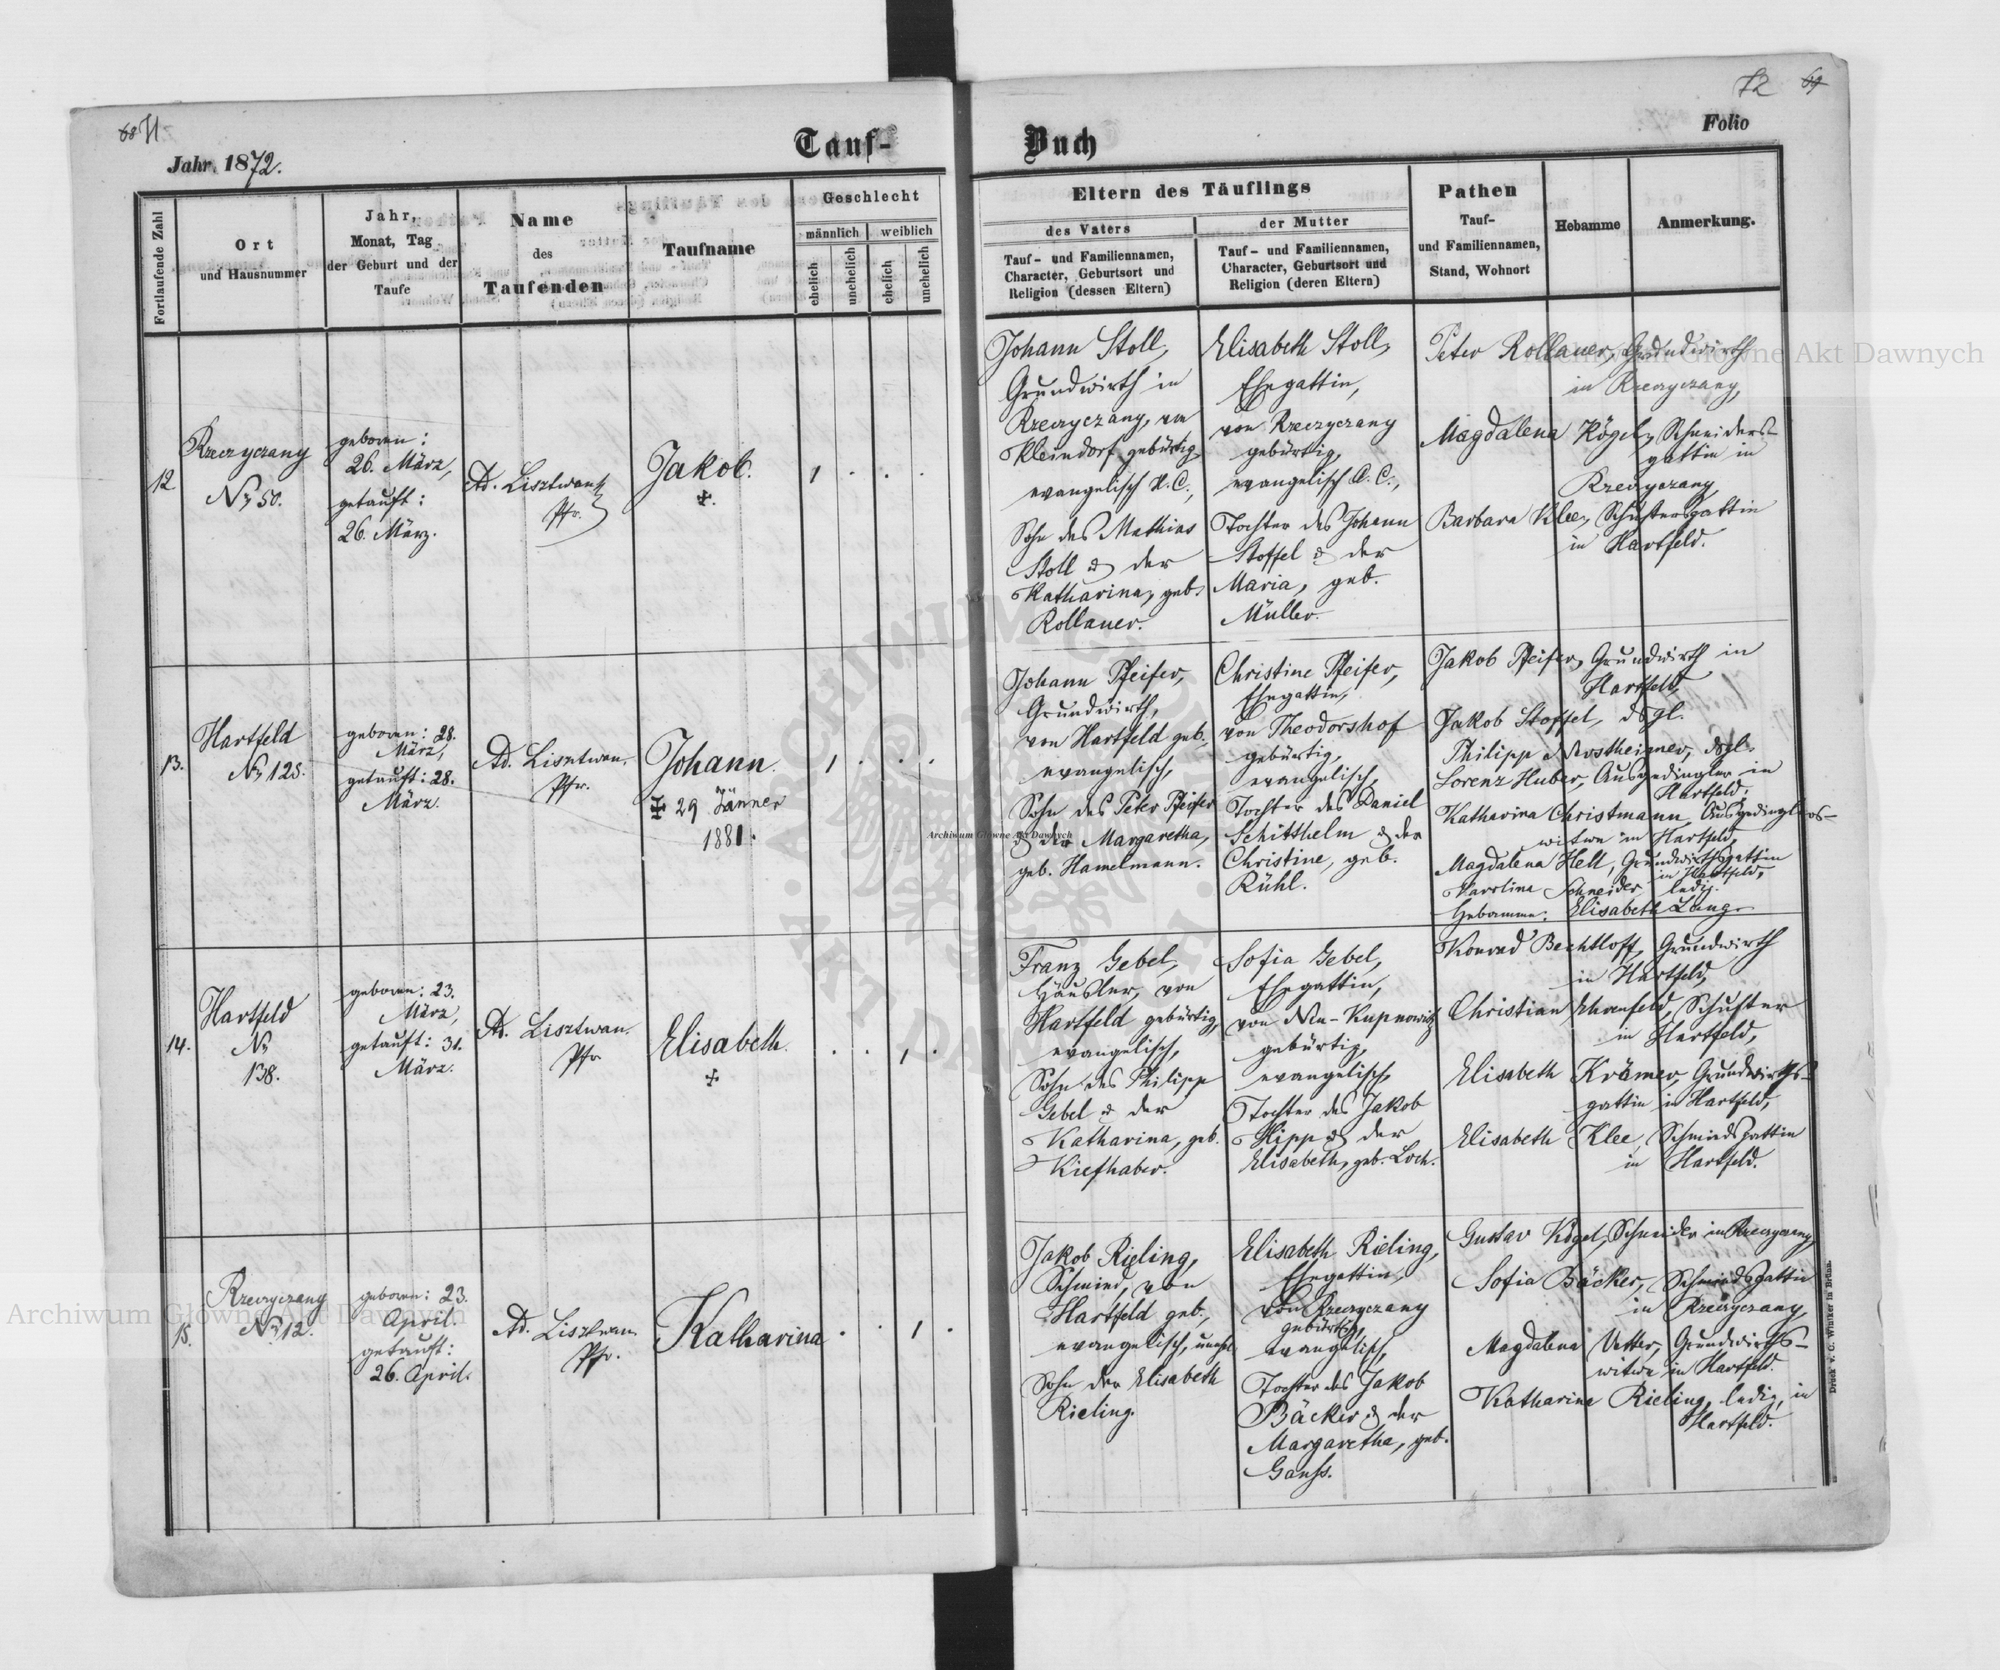 71
Jahr, 1872.
Tauf-
Fortlaufende Zahl
Ort
und Hausnummer
Jahr,
Monat, Tag
der Geburt und der
Taufe
Name
des
Taufenden
Taufname
Geschlecht
männlich
weiblich
ehelich
unehelich
ehelich
unehelich
12
Rzeczyczany
No 50.
geboren:
26. März,
getauft:
26. März.
Ad. Lisztwan,
Pfr.
Jakob.
+.
1 . . .
13.
Hartfeld
No 128.
geboren: 28.
März,
getauft: 28.
März.
Ad. Lisztwan.
Pfr.
Johann.
‡ 29 Jänner
1881.
1 . . .
14.
Hartfeld
No
138.
geboren: 23.
März,
getauft: 31.
März.
Ad. Lisztwan.
Pfr
Elisabeth.
+
. . 1 .
15.
Rzeczyczany
No 12.
geboren: 23.
April.
getauft:
26. April.
Ad. Lisztwan
Pfr.
Katharina
. . 1 .
72 69
Buch
Folio
Eltern des Täuflings
des Vaters
der Mutter
Tauf- und Familiennamen,
Character, Geburtsort und
Religion (dessen Eltern)
Tauf- und Familiennamen,
Character, Geburtsort und
Religion (deren Eltern)
Pathen
Tauf-
und Familiennamen,
Stand, Wohnort
Hebamme
Anmerkung.
Johann Stoll,
Grundwirth in
Rzeczyczany, von
Kleindorf gebürtig,
evangelisch A. C.,
Sohn des Mathias
Stoll & der
Katharina, geb.
Rollauer.
Elisabeth Stoll,
Ehegattin,
von Rzeczyczany
gebürtig,
evangelisch A. C.,
Tochter des Johann
Stoffel & der
Maria, geb.
Müller.
Peter Rollauer, Grundwirth
in Rzeczyczany,
Magdalena Kögel, Schneiders-
gattin in
Rzeczyczany
Barbara Klee, Schustersgattin
in Hartfeld.
Johann Pfeifer,
Grundwirth,
von Hartfeld geb.,
evangelisch,
Sohn des Peter Pfeifer
& der Margaretha,
geb. Hamelmann.
Christine Pfeifer,
Ehegattin,
von Theodorshof
gebürtig,
evangelisch,
Tochter des Daniel
Schitthelm & der
Christine, geb.
Rühl.
Jakob Pfeifer, Grundwirth in
Hartfeld,
Jakob Stoffel, dsgl.
Philipp Nrostheimer, dsgl.
Lorenz Huber, Ausgedingler in
Hartfeld,
Katharina Christmann, Ausgedinglers-
witwe in Hartfeld,
Magdalena Hell, Grundwirthsgattin
in Hartfeld,
Karolina Schneider ledig.
Hebamme: Elisabeth Lang.
Franz Gebel,
Häusler, von
Hartfeld gebürtig,
evangelisch,
Sohn des Philipp
Gebel & der
Katharina, geb.
Kiefhaber.
Sofia Gebel,
Ehegattin,
von Neu-Kupnowitz
gebürtig,
evangelisch
Tochter des Jakob
Hipp & der
Elisabeth, geb. Loch.
Konrad Bechtloff, Grundwirth
in Hartfeld,
Christian Ehrenfeld, Schuster
in Hartfeld,
Elisabeth Krämer, Grundwirths-
gattin in Hartfeld,
Elisabeth Klee, Schmiedsgattin
in Hartfeld.
Jakob Rieling,
Schmied, von
Hartfeld geb.,
evangelisch, unehel.
Sohn der Elisabeth
Rieling.
Elisabeth Rieling,
Ehegattin,
von Rzeczyczany
gebürtig,
evangelisch,
Tochter des Jakob
Bäcker & der
Margaretha, geb.
Ganss.
Gustav Kögel, Schneider in Rzeczyczany,
Sofia Bäcker, Schmiedsgattin
in Rzeczyczany,
Magdalena Vetter, Grundwirths-
witwe in Hartfeld.
Katharina Rieling, ledig, in
Hartfeld.
Druck v. C. Winiker in Brünn.
Archiwum Główne Akt Dawnych
Archiwum Główne Akt Dawnych
Archiwum Główne Akt Dawnych